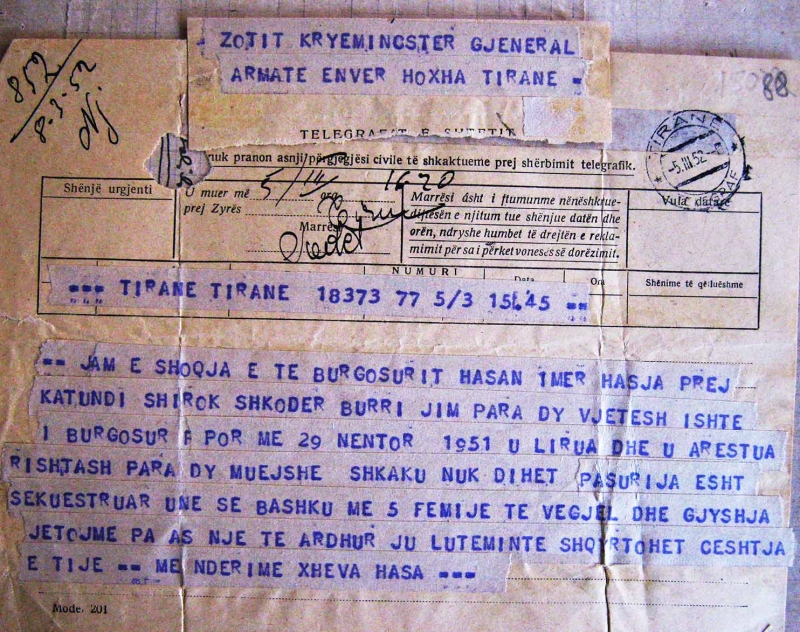 852
8.3.52
ZOTIT KRYEMINCSTER GJENERAL
ARMATE ENVER HOXHA TIRANE =
88
TELEGRAFAT E SHTETIT
nuk pranon asnji përgjegjësi civile të shkaktueme prej shërbimit telegrafik.
TIRANË
-5.III.52
Shënjë urgjenti
U muer më 5/III ora 1620
prej Zyrës
Marrësi
Marrësi âsht i ftumunme nënëshkrue-
diftesën e njitum tue shënjue datën dhe
orën, ndryshe humbet të drejtën e rekla-
mimit për sa i përket vonesës së dorëzimit.
Vula datare
NUMURI
Data
Ora
Shënime të që lueshme
--- TIRANE TIRANE 18373 77 5/3 15.45 --
-- JAM E SHOQJA E TE BURGOSURIT HASAN IMER HASJA PREJ
KATUNDI SHIROK SHKODER BURRI JIM PARA DY VJETESH ISHTE
I BURGOSUR POR ME 29 NENTOR 1951 U LIRUA DHE U ARESTUA
RISHTASH PARA DY MUEJSHE SHKAKU NUK DIHET PASURIJA ESHT
SEKUESTRUAR UNE SE BASHKU ME 5 FEMIJE TE VEGJEL DHE GJYSHJA
JETOJME PA AS NJE TE ARDHUR JU LUTEMINTE SHQYRTOHET CESHTJA
E TIJE -- ME NDERIME XHEVA HASA ---
Mode. 201